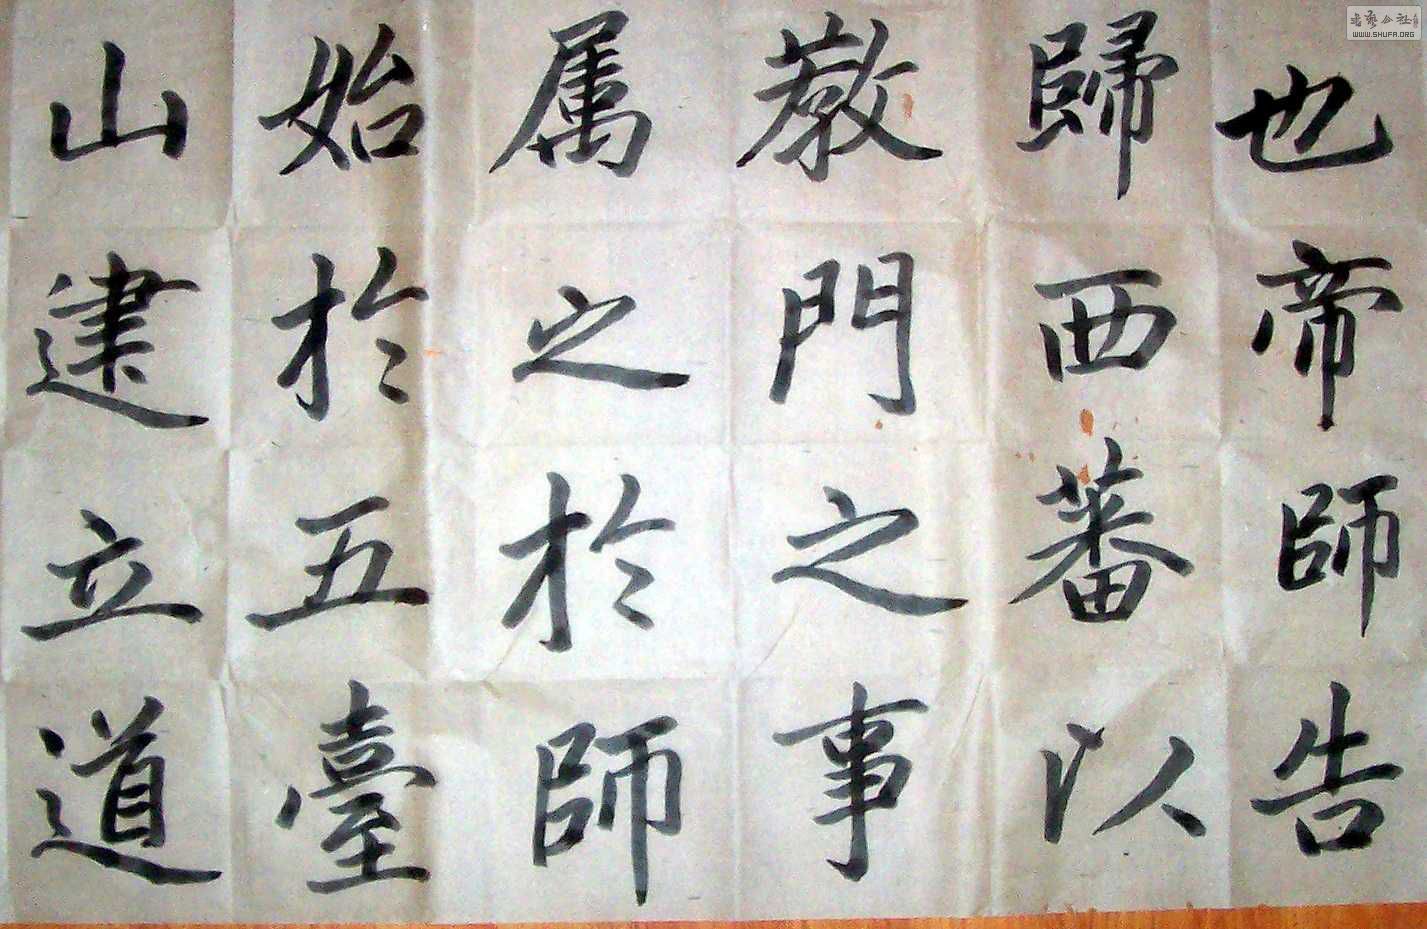 也帝師告
歸西蕃以
教門之事
属之於師
始於五臺
山建立道
書藝公社
WWW.SHUFA.ORG